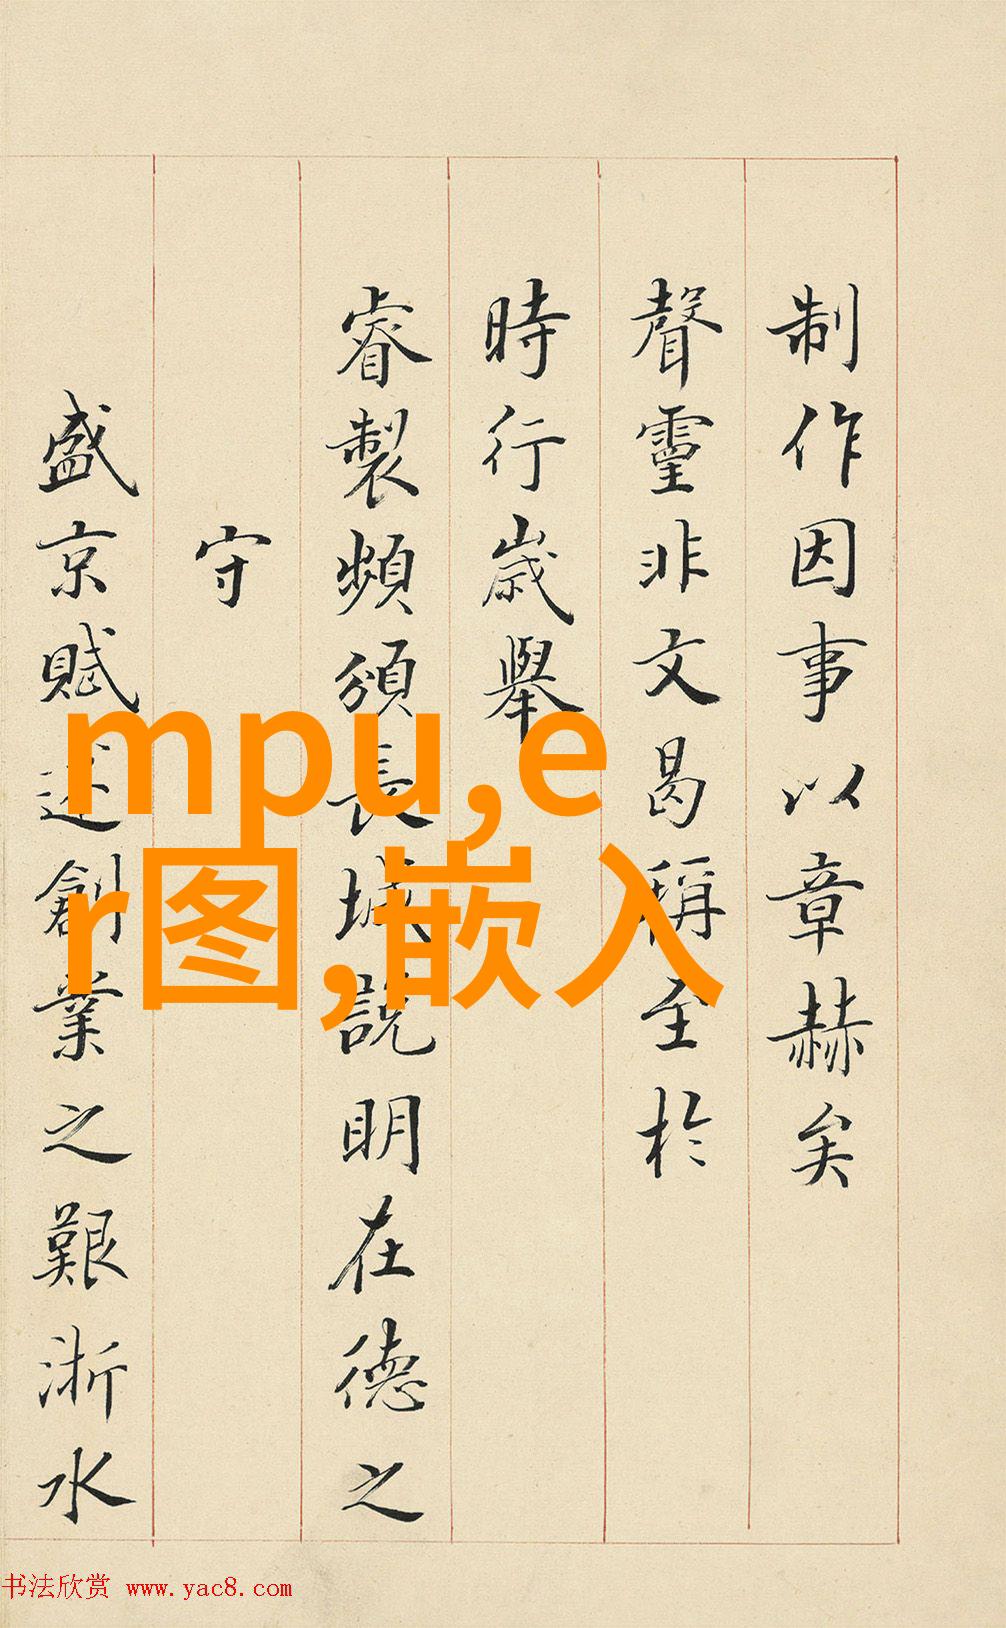 制作因事以章赫矣
聲靈非文曷稱至於
時行歲舉
睿製頻頒長城説明在德之
守
盛京賦述創業之艱浙水
mpu,e
r图,嵌入
书法欣赏 www.yac8.com